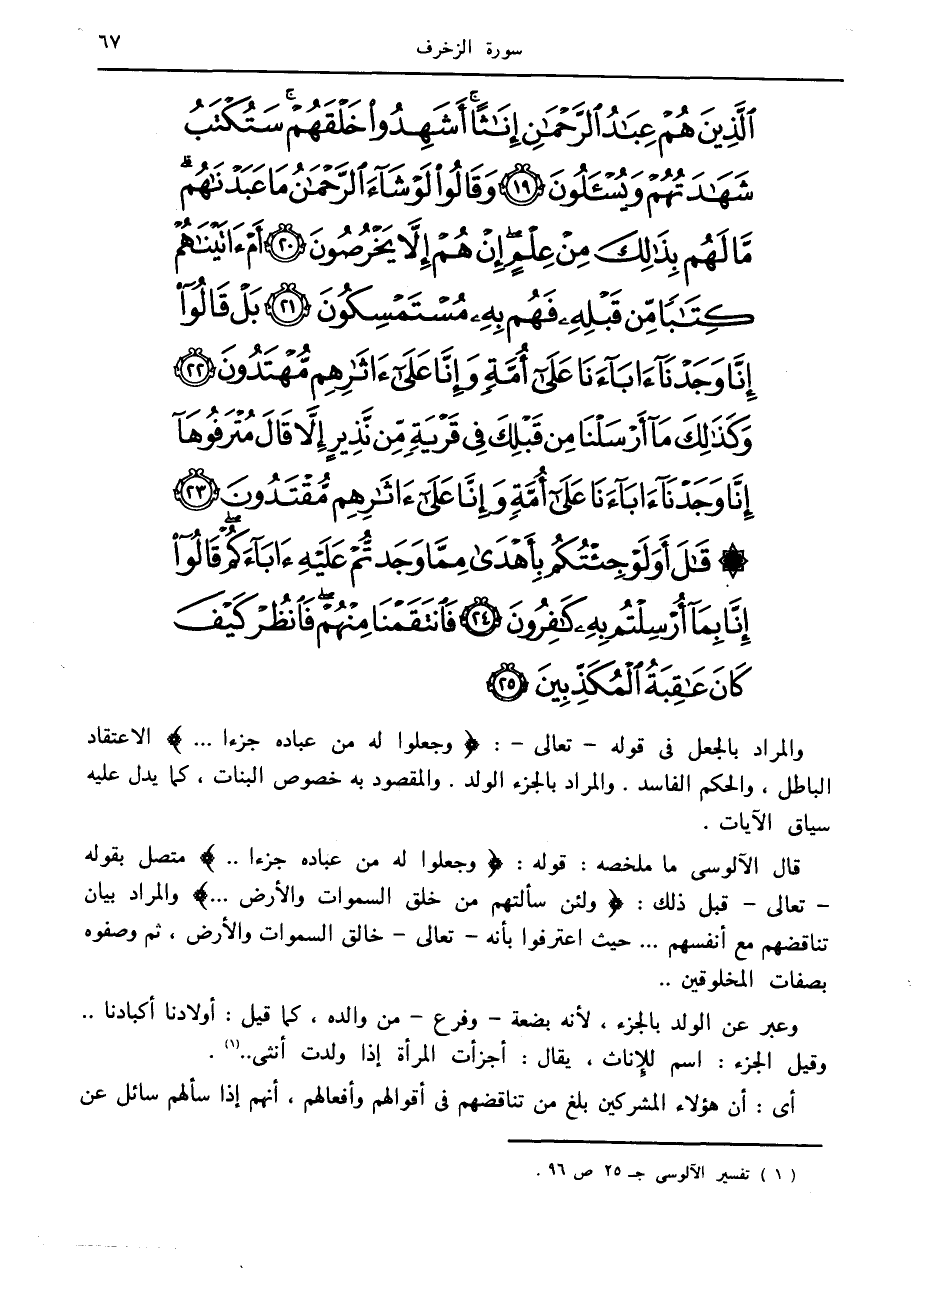 سورة الزخرف ٦٧
ٱلَّذِينَ هُمْ عِبَٰدُ ٱلرَّحْمَٰنِ إِنَٰثًا ۚ أَشَهِدُوا۟ خَلْقَهُمْ ۚ سَتُكْتَبُ
شَهَٰدَتُهُمْ وَيُسْـَٔلُونَ ﴿١٩﴾ وَقَالُوا۟ لَوْ شَآءَ ٱلرَّحْمَٰنُ مَا عَبَدْنَٰهُم ۗ
مَّا لَهُم بِذَٰلِكَ مِنْ عِلْمٍ ۖ إِنْ هُمْ إِلَّا يَخْرُصُونَ ﴿٢٠﴾ أَمْ ءَاتَيْنَٰهُمْ
كِتَٰبًا مِّن قَبْلِهِۦ فَهُم بِهِۦ مُسْتَمْسِكُونَ ﴿٢١﴾ بَلْ قَالُوٓا۟
إِنَّا وَجَدْنَآ ءَابَآءَنَا عَلَىٰٓ أُمَّةٍ وَإِنَّا عَلَىٰٓ ءَاثَٰرِهِم مُّهْتَدُونَ ﴿٢٢﴾
وَكَذَٰلِكَ مَآ أَرْسَلْنَا مِن قَبْلِكَ فِى قَرْيَةٍ مِّن نَّذِيرٍ إِلَّا قَالَ مُتْرَفُوهَآ
إِنَّا وَجَدْنَآ ءَابَآءَنَا عَلَىٰٓ أُمَّةٍ وَإِنَّا عَلَىٰٓ ءَاثَٰرِهِم مُّقْتَدُونَ ﴿٢٣﴾
۞ قَٰلَ أَوَلَوْ جِئْتُكُم بِأَهْدَىٰ مِمَّا وَجَدتُّمْ عَلَيْهِ ءَابَآءَكُمْ ۖ قَالُوٓا۟
إِنَّا بِمَآ أُرْسِلْتُم بِهِۦ كَٰفِرُونَ ﴿٢٤﴾ فَٱنتَقَمْنَا مِنْهُمْ ۖ فَٱنظُرْ كَيْفَ
كَانَ عَٰقِبَةُ ٱلْمُكَذِّبِينَ ﴿٢٥﴾
والمراد بالجعل فى قوله - تعالى - : ﴿ وجعلوا له من عباده جزءا ... ﴾ الاعتقاد
الباطل ، والحكم الفاسد . والمراد بالجزء الولد . والمقصود به خصوص البنات ، كما يدل عليه
سياق الآيات .
قال الآلوسى ما ملخصه : قوله : ﴿ وجعلوا له من عباده جزءا .. ﴾ متصل بقوله
- تعالى - قبل ذلك : ﴿ ولئن سألتهم من خلق السموات والأرض ...﴾ والمراد بيان
تناقضهم مع أنفسهم ... حيث اعترفوا بأنه - تعالى - خالق السموات والأرض ، ثم وصفوه
بصفات المخلوقين ..
وعبر عن الولد بالجزء ، لأنه بضعة - وفرع - من والده ، كما قيل : أولادنا أكبادنا ..
وقيل الجزء : اسم للإناث ، يقال : أجزأت المرأة إذا ولدت أنثى..(١) .
أى : أن هؤلاء المشركين بلغ من تناقضهم فى أقوالهم وأفعالهم ، أنهم إذا سألهم سائل عن
( ١ ) تفسير الآلوسى جـ ٢٥ ص ٩٦ .